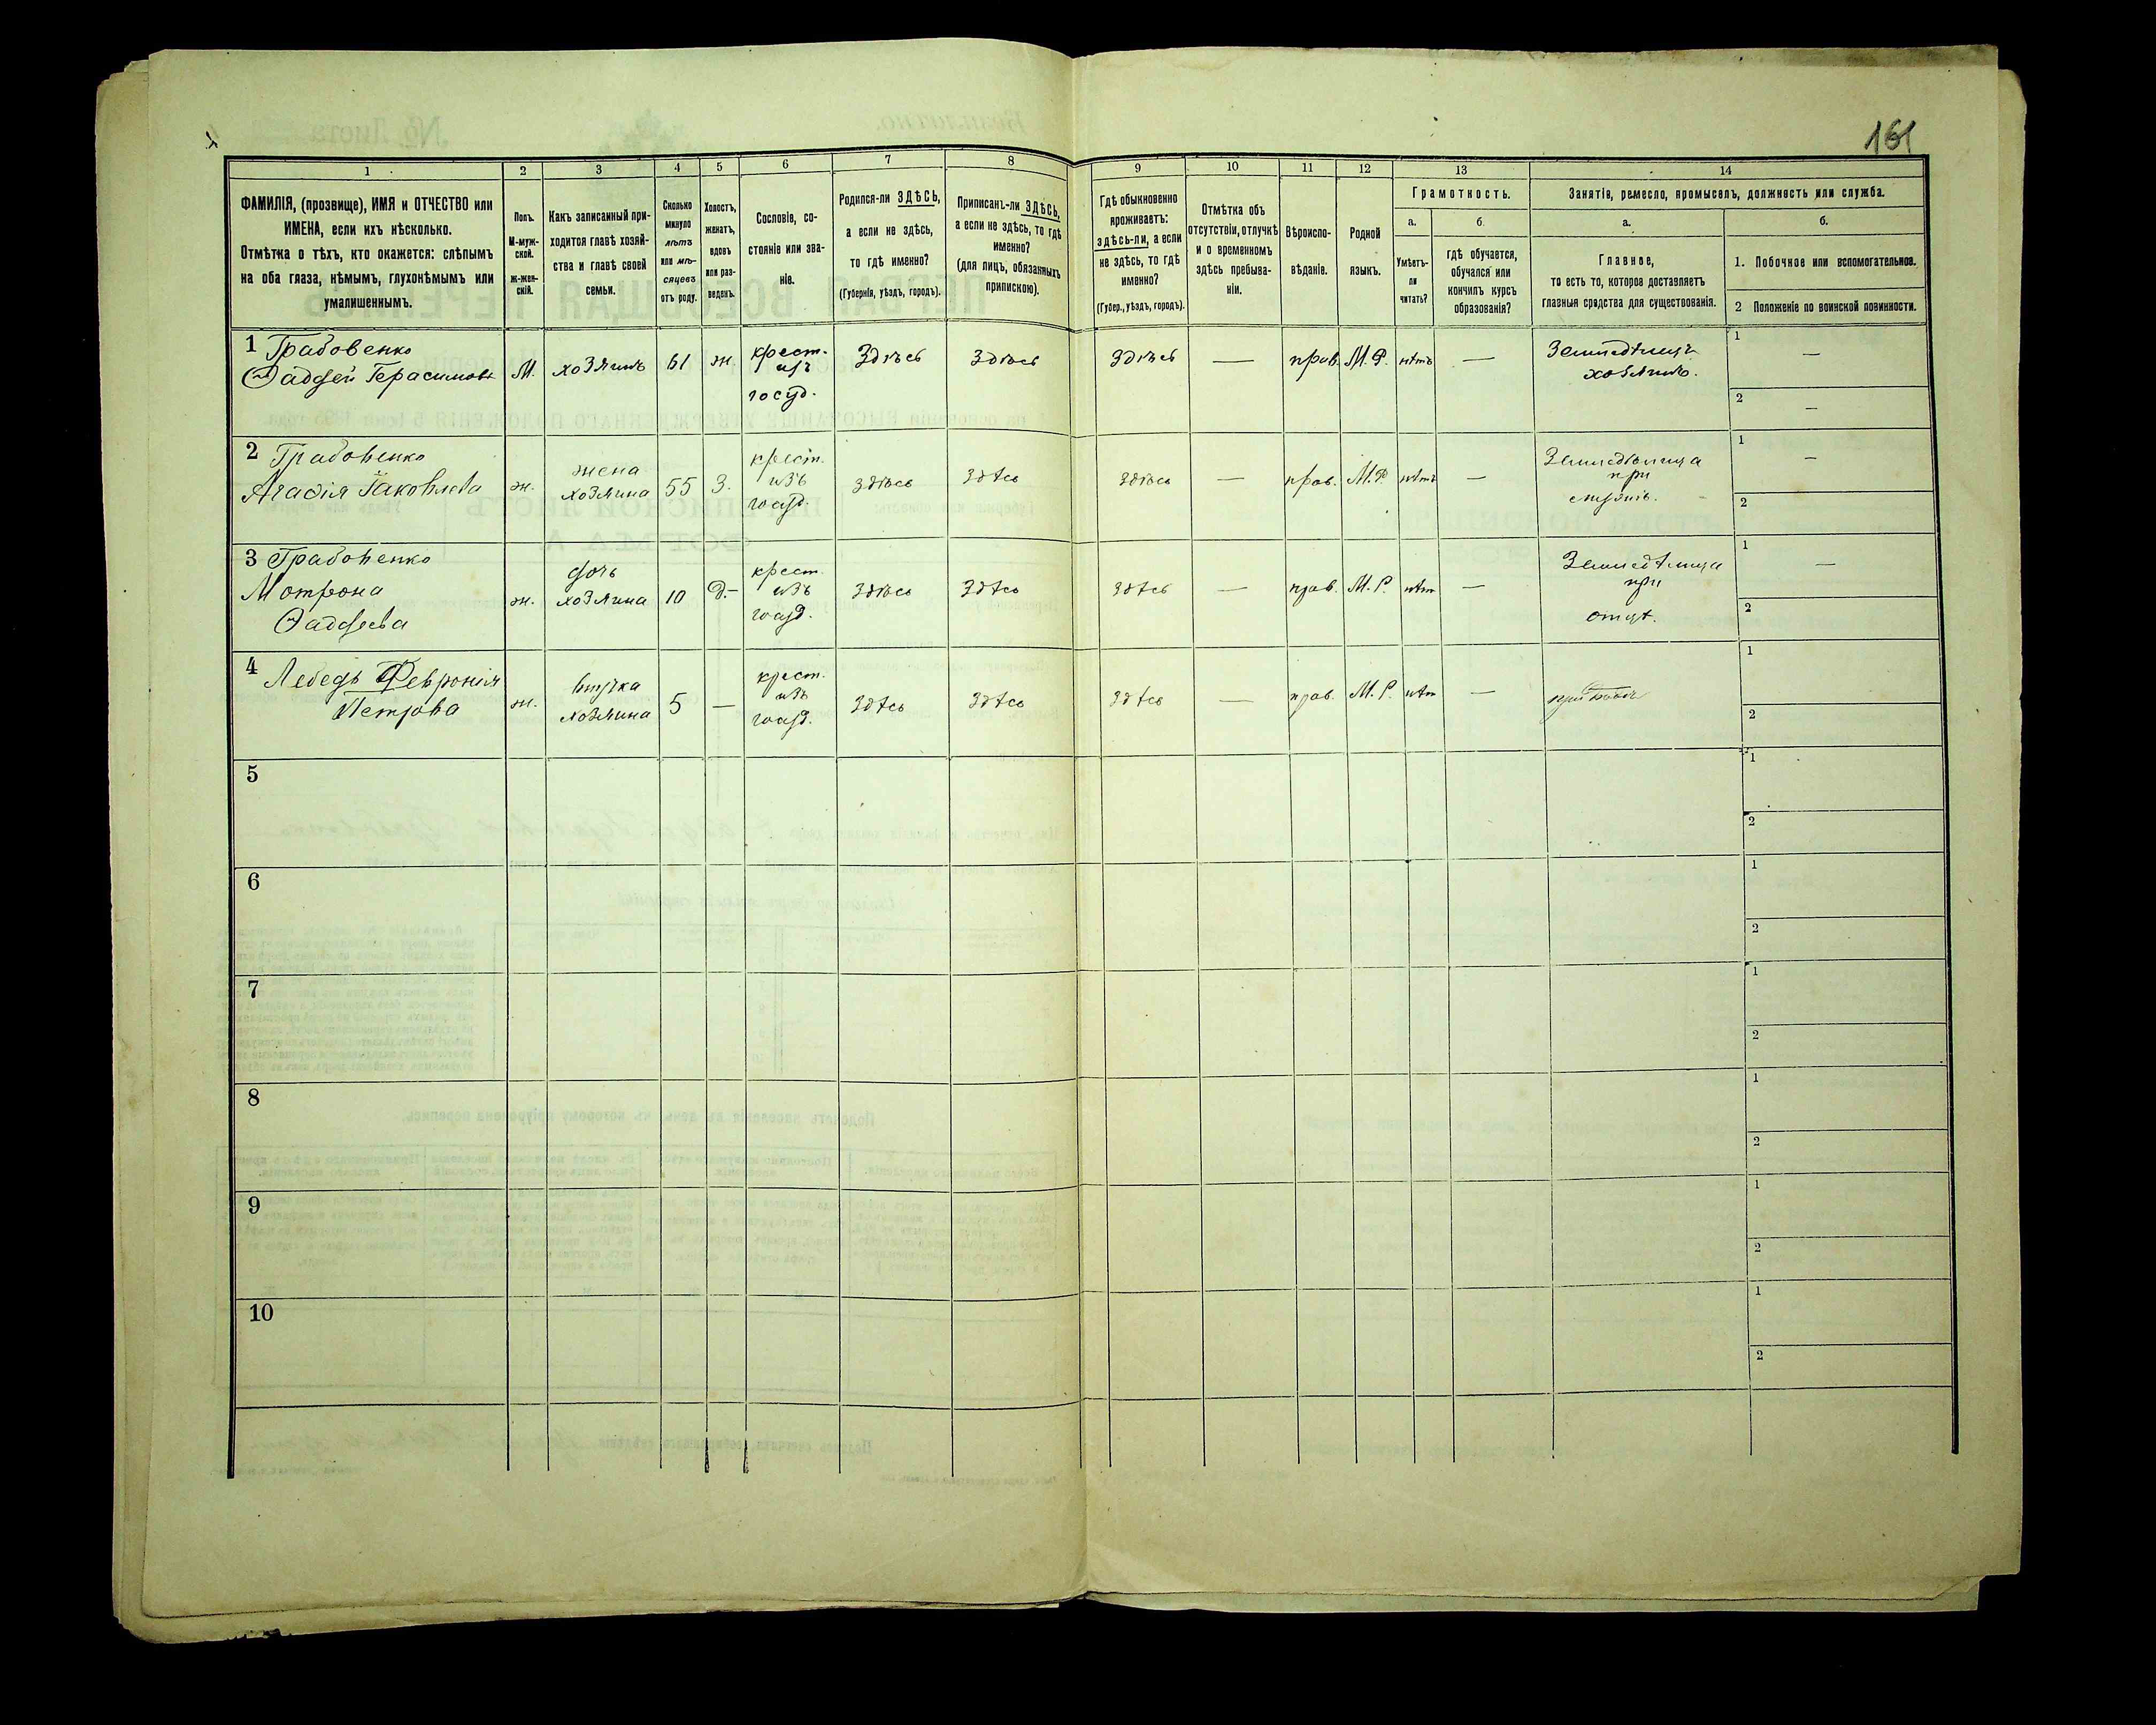 161
1
2
3
4
5
6
7
8
9
10
11
12
13
14
ФАМИЛІЯ, (прозвище), ИМЯ и ОТЧЕСТВО или
ИМЕНА, если ихъ нѣсколько.
Отмѣтка о тѣхъ, кто окажется: слѣпымъ
на оба глаза, нѣмымъ, глухонѣмымъ или
умалишеннымъ.
Полъ.
М-муж-
ской.
ж-жен-
скій.
Какъ записанный при-
ходится главѣ хозяй-
ства и главѣ своей
семьи.
Сколько
минуло
лѣтъ
или мѣ-
сяцевъ
отъ роду.
Холостъ,
женатъ,
вдовъ
или раз-
веденъ.
Сословіе, со-
стояніе или зва-
ніе.
Родился-ли ЗДѢСЬ,
а если не здѣсь,
то гдѣ именно?
(Губернія, уѣздъ, городъ).
Приписанъ-ли ЗДѢСЬ,
а если не здѣсь, то гдѣ
именно?
(для лицъ, обязанныхъ
припискою).
Гдѣ обыкновенно
проживаетъ:
здѣсь-ли, а если
не здѣсь, то гдѣ
именно?
(Губер., уѣздъ, городъ).
Отмѣтка объ
отсутствіи, отлучкѣ
и о временномъ
здѣсь пребыва-
ніи.
Вѣроиспо-
вѣданіе.
Родной
языкъ.
Грамотность.
а.
Умѣетъ-
ли
читать?
б.
гдѣ обучается,
обучался или
кончилъ курсъ
образованія?
Занятія, ремесло, промыселъ, должность или служба.
а.
Главное,
то есть то, которое доставляетъ
главныя средства для существованія.
б.
1. Побочное или вспомогательное.
2 Положеніе по воинской повинности.
1 Грабовенко
Ѳаддей Герасимовъ
М.
хозяинъ
61
ж.
крест.
изъ
госуд.
Здѣсь
Здѣсь
Здѣсь
—
прав.
М.Р.
нѣтъ
—
Земледѣлецъ
хозяинъ.
1
—
2
—
2 Грабовенко
Агафія Яковлева
ж.
жена
хозяина
55
З.
крест.
изъ
госуд.
здѣсь
здѣсь
здѣсь
—
прав.
М.Р
нѣтъ
—
Земледѣлица
при
1
—
2
3 Грабовенко
Мотрона
Ѳаддеева
ж.
дочь
хозяина
10
Д.—
крест.
изъ
госуд.
здѣсь
здѣсь
здѣсь
—
прав.
М.Р.
нѣт
—
Земледѣлица
при
отцѣ.
1
—
2
4 Лебедь Февронія
Петрова
ж.
внучка
хозяина
5
—
крест.
изъ
госуд.
здѣсь
здѣсь
здѣсь
—
прав.
М.Р.
нѣт
—
1
2
5
1
2
6
1
2
7
1
2
8
1
2
9
1
2
10
1
2